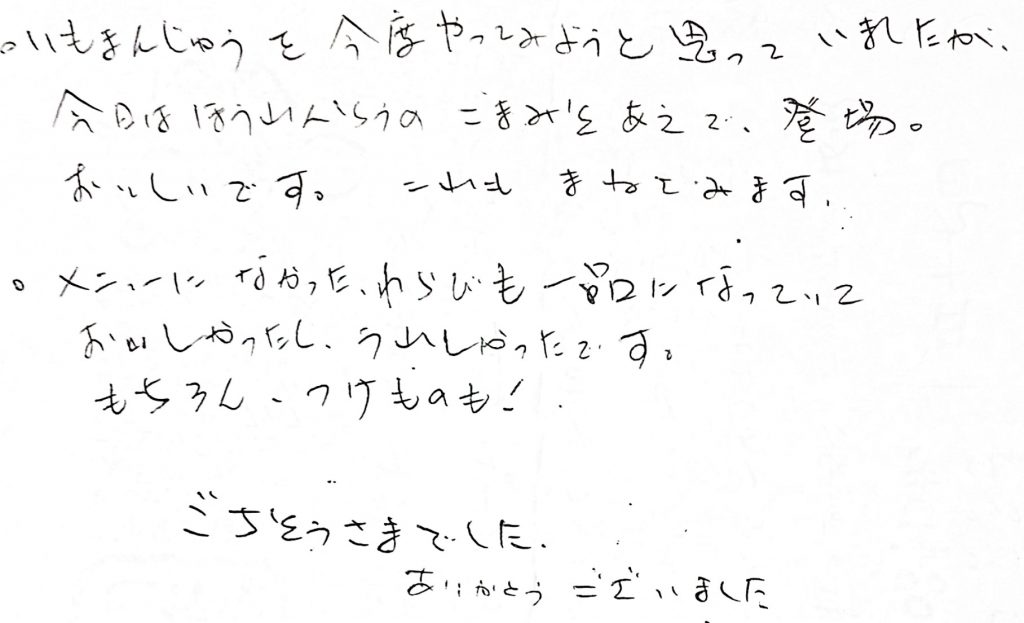 ○いもまんじゅうを今度やってみようと思っていましたが、
今日はほうれんそうのごまみそあえで、登場。
おいしいです。これもまねてみます。
○メニューになかった、わらびも一品になっていて
おいしかったし、うれしかったです。
もちろん、つけものも！
ごちそうさまでした。
ありがとうございました